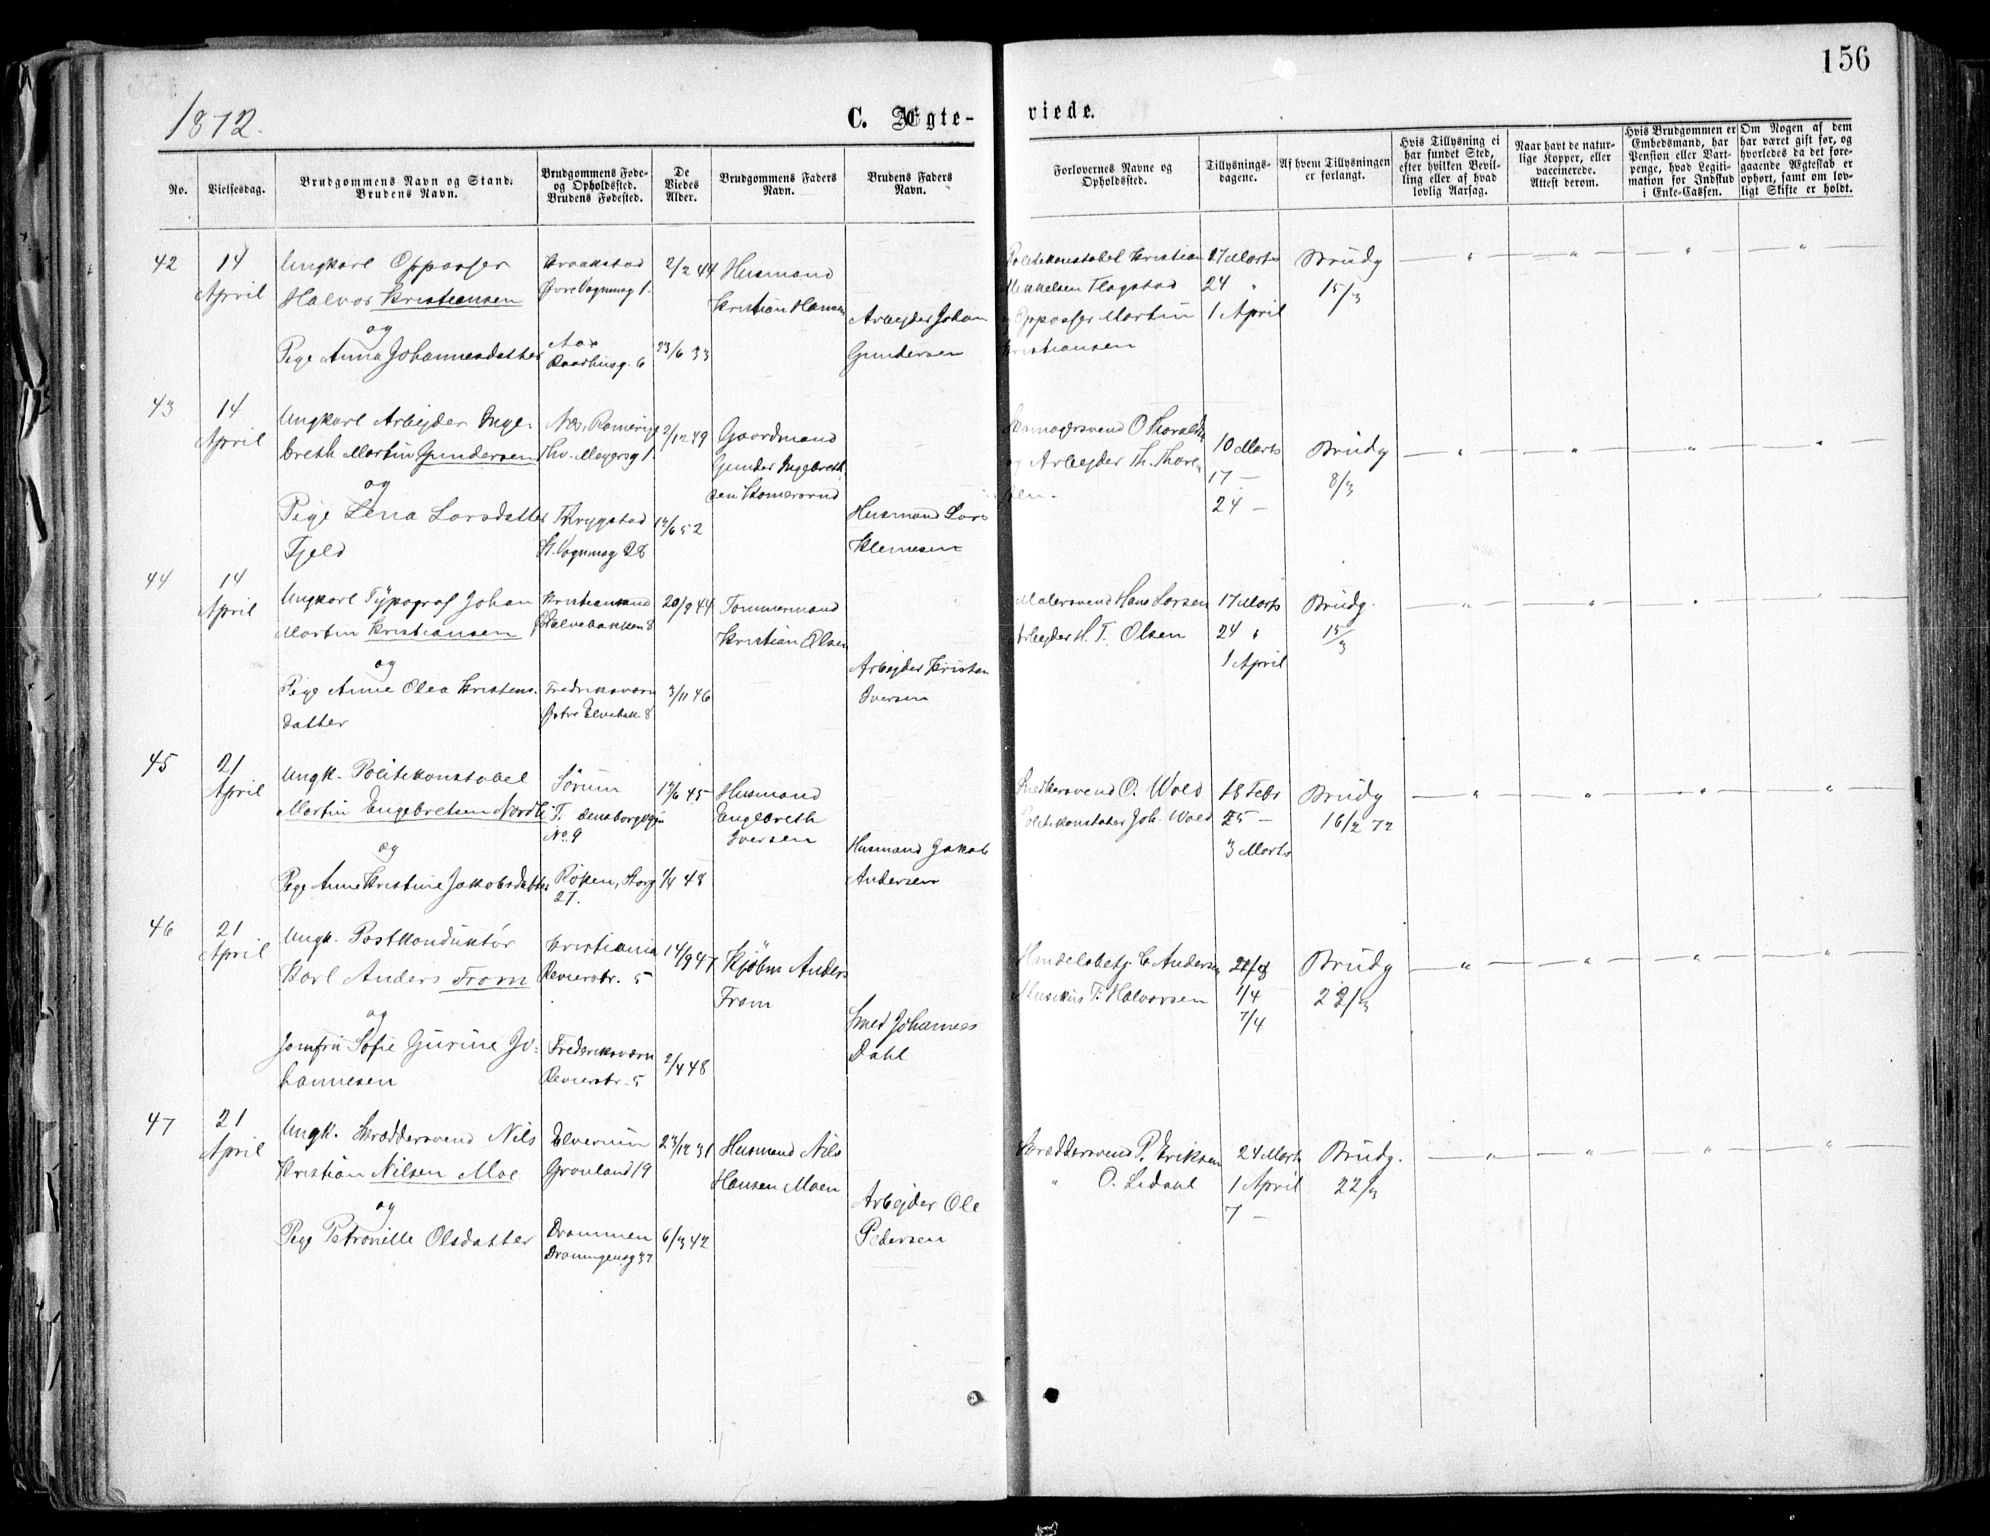 156
1872.
C. Ægte-
viede.
No.
Vielsesdag.
Brudgommens Navn og Stand.
Brudens Navn.
Brudgommens Føde-
og Opholdssted.
Brudens Fødested.
De
Viedes
Alder.
Brudgommens Faders
Navn.
Brudens Faders
Navn.
Forlovernes Navne og
Opholdssted.
Tillysnings-
dagene.
Af hvem Tillysningen
er forlangt.
Hvis Tillysning ei
har fundet Sted,
efter hvilken Bevil-
ling eller af hvad
lovlig Aarsag.
Naar havt de natur-
lige Kopper, eller
vaccinerede.
Attest derom.
Hvis Brudgommen er
Embedsmand, har
Pension eller Vart-
penge, hvad Legiti-
mation for Indskud
i Enke-Cassen.
Om Nogen af dem
har været gift før, og
hvorledes da det fore-
gaaende Ægteskab er
ophørt, samt om lov-
ligt Skifte er holdt.
42
14
April
Ungkarl Oppasser
Halvor Kristiansen
og
Pige Anna Johannesdatter
Kraakstad
Øvre Vognmag 1.
Aas
Raadhusg. 6
2/2 44
23/6 33
Husmand
Kristian Hansen
Arbejder Johan
Gundersen
Politikonstabel Kristian
Mikkelsen Flagstad
og Oppasser Martin
Kristiansen
17 Marts
24 "
1 April
Brudg
15/3
43
14
April
Ungkarl Arbejder Inge-
breth Martin Gundersen
og
Pige Lena Larsdatter
Fjeld
Næs, Romerige
Thv. Meyersg 1
Trygstad
St. Vognmag 28
2/12 49
17/6 52
Gaardmand
Gunder Ingebreth
sen
Husmand Lars
Klemesen
O Thorald
og Arbejder Th. Thore
sen.
10 Marts
17 —
24 —
Brudg
8/3
44
14
April
Ungkarl Typograf Johan
Martin Kristiansen
og
Pige Anne Olea Kristens.
datter
Kristiansand
Ø Elvebakken 8
Fredriksværn
Østre Elvebak. 8
20/9 44
3/11 46
Tømmermand
Kristian Olsen
Arbejder Kristen
Iversen
Malersvend Hans Larsen
Arbejder H. T. Olsen
17 Marts
24 "
1 April
Brudg.
15/3
45
21
April
Ungk. Politikonstabel
Martin Engebretsen Nordli
og
Pige Anne Kristine Jakobsdatter
Sørum
No. 9
Røken, Storg
27.
17/6 45
1/4 48
Husmand
Engebreth
Iversen
Husmand Jakob
Andersen
Snedkersvend O. Wold
Politikonstabel Joh. Wold
18 Febr
25 —
3 Marts
Brudg
16/2 72
46
21
April
Ungk. Postkonduktør
Karl Anders From
og
Jomfru Sofie Gurine Jo-
hannesen
Kristiania
Revierstr. 5
Frederiksværn
Revierstr. 5
14/9 47
2/4 48
Kjøbm Anders
From
Smed Johannes
Dahl
Handelsbetj. C Andersen
Musikus T. Halvorsen
1/4
7/4
Brudg
22/3
47
21
April
Ungk. Skræddersvend Nils
Kristian Nilsen Moe
og
Pige Petronille Olsdatter
Elverum
Grønland 19
Drammen
Dronningensg 37
23/12 31
6/3 42
Husmand Nils
Hansen Moen
Arbejder Ole
Pedersen
Skræddersvend P. Eriksen
" O. Lidahl
24 Marts
1 April
7 —
Brudg.
22/3